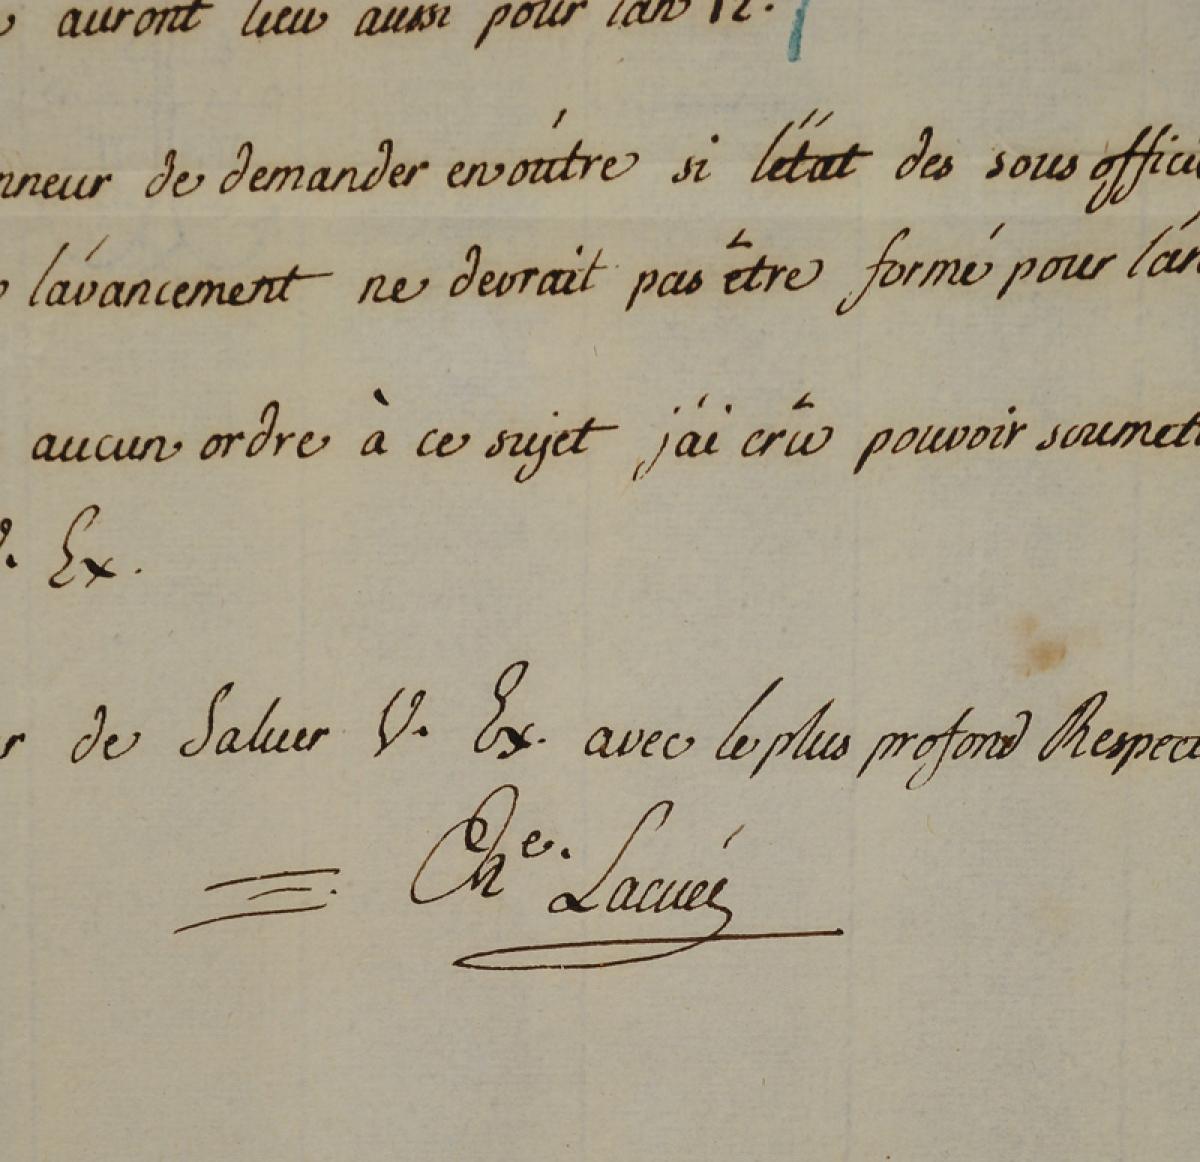 auront lieu aussi pour l'an 12.
nneur de demander en oûtre si l'état des sous offici
l'avancement ne devrait pas être formé pour l'an
aucun ordre à ce sujet j'ai crû pouvoir soumett
V. Ex.
r de Saluer V. Ex. avec le plus profond Respect
Che. Lacuée